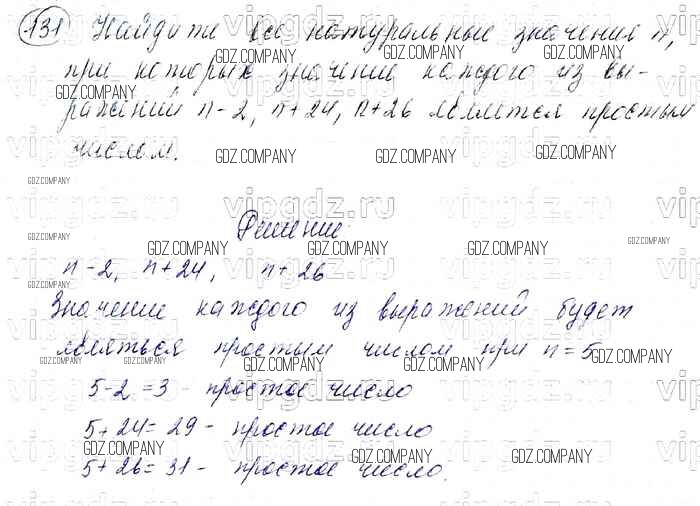 131 Найдите все натуральные значения n,
при которых значение каждого из вы-
ражений n-2, n+24, n+26 является простым
числом.
Решение:
n-2, n+24, n+26
Значение каждого из выражений будет
являться простым числом при n=5
5-2=3 - простое число
5+24=29 - простое число
5+26=31 - простое число.
vipgdz.ru
GDZ.COMPANY